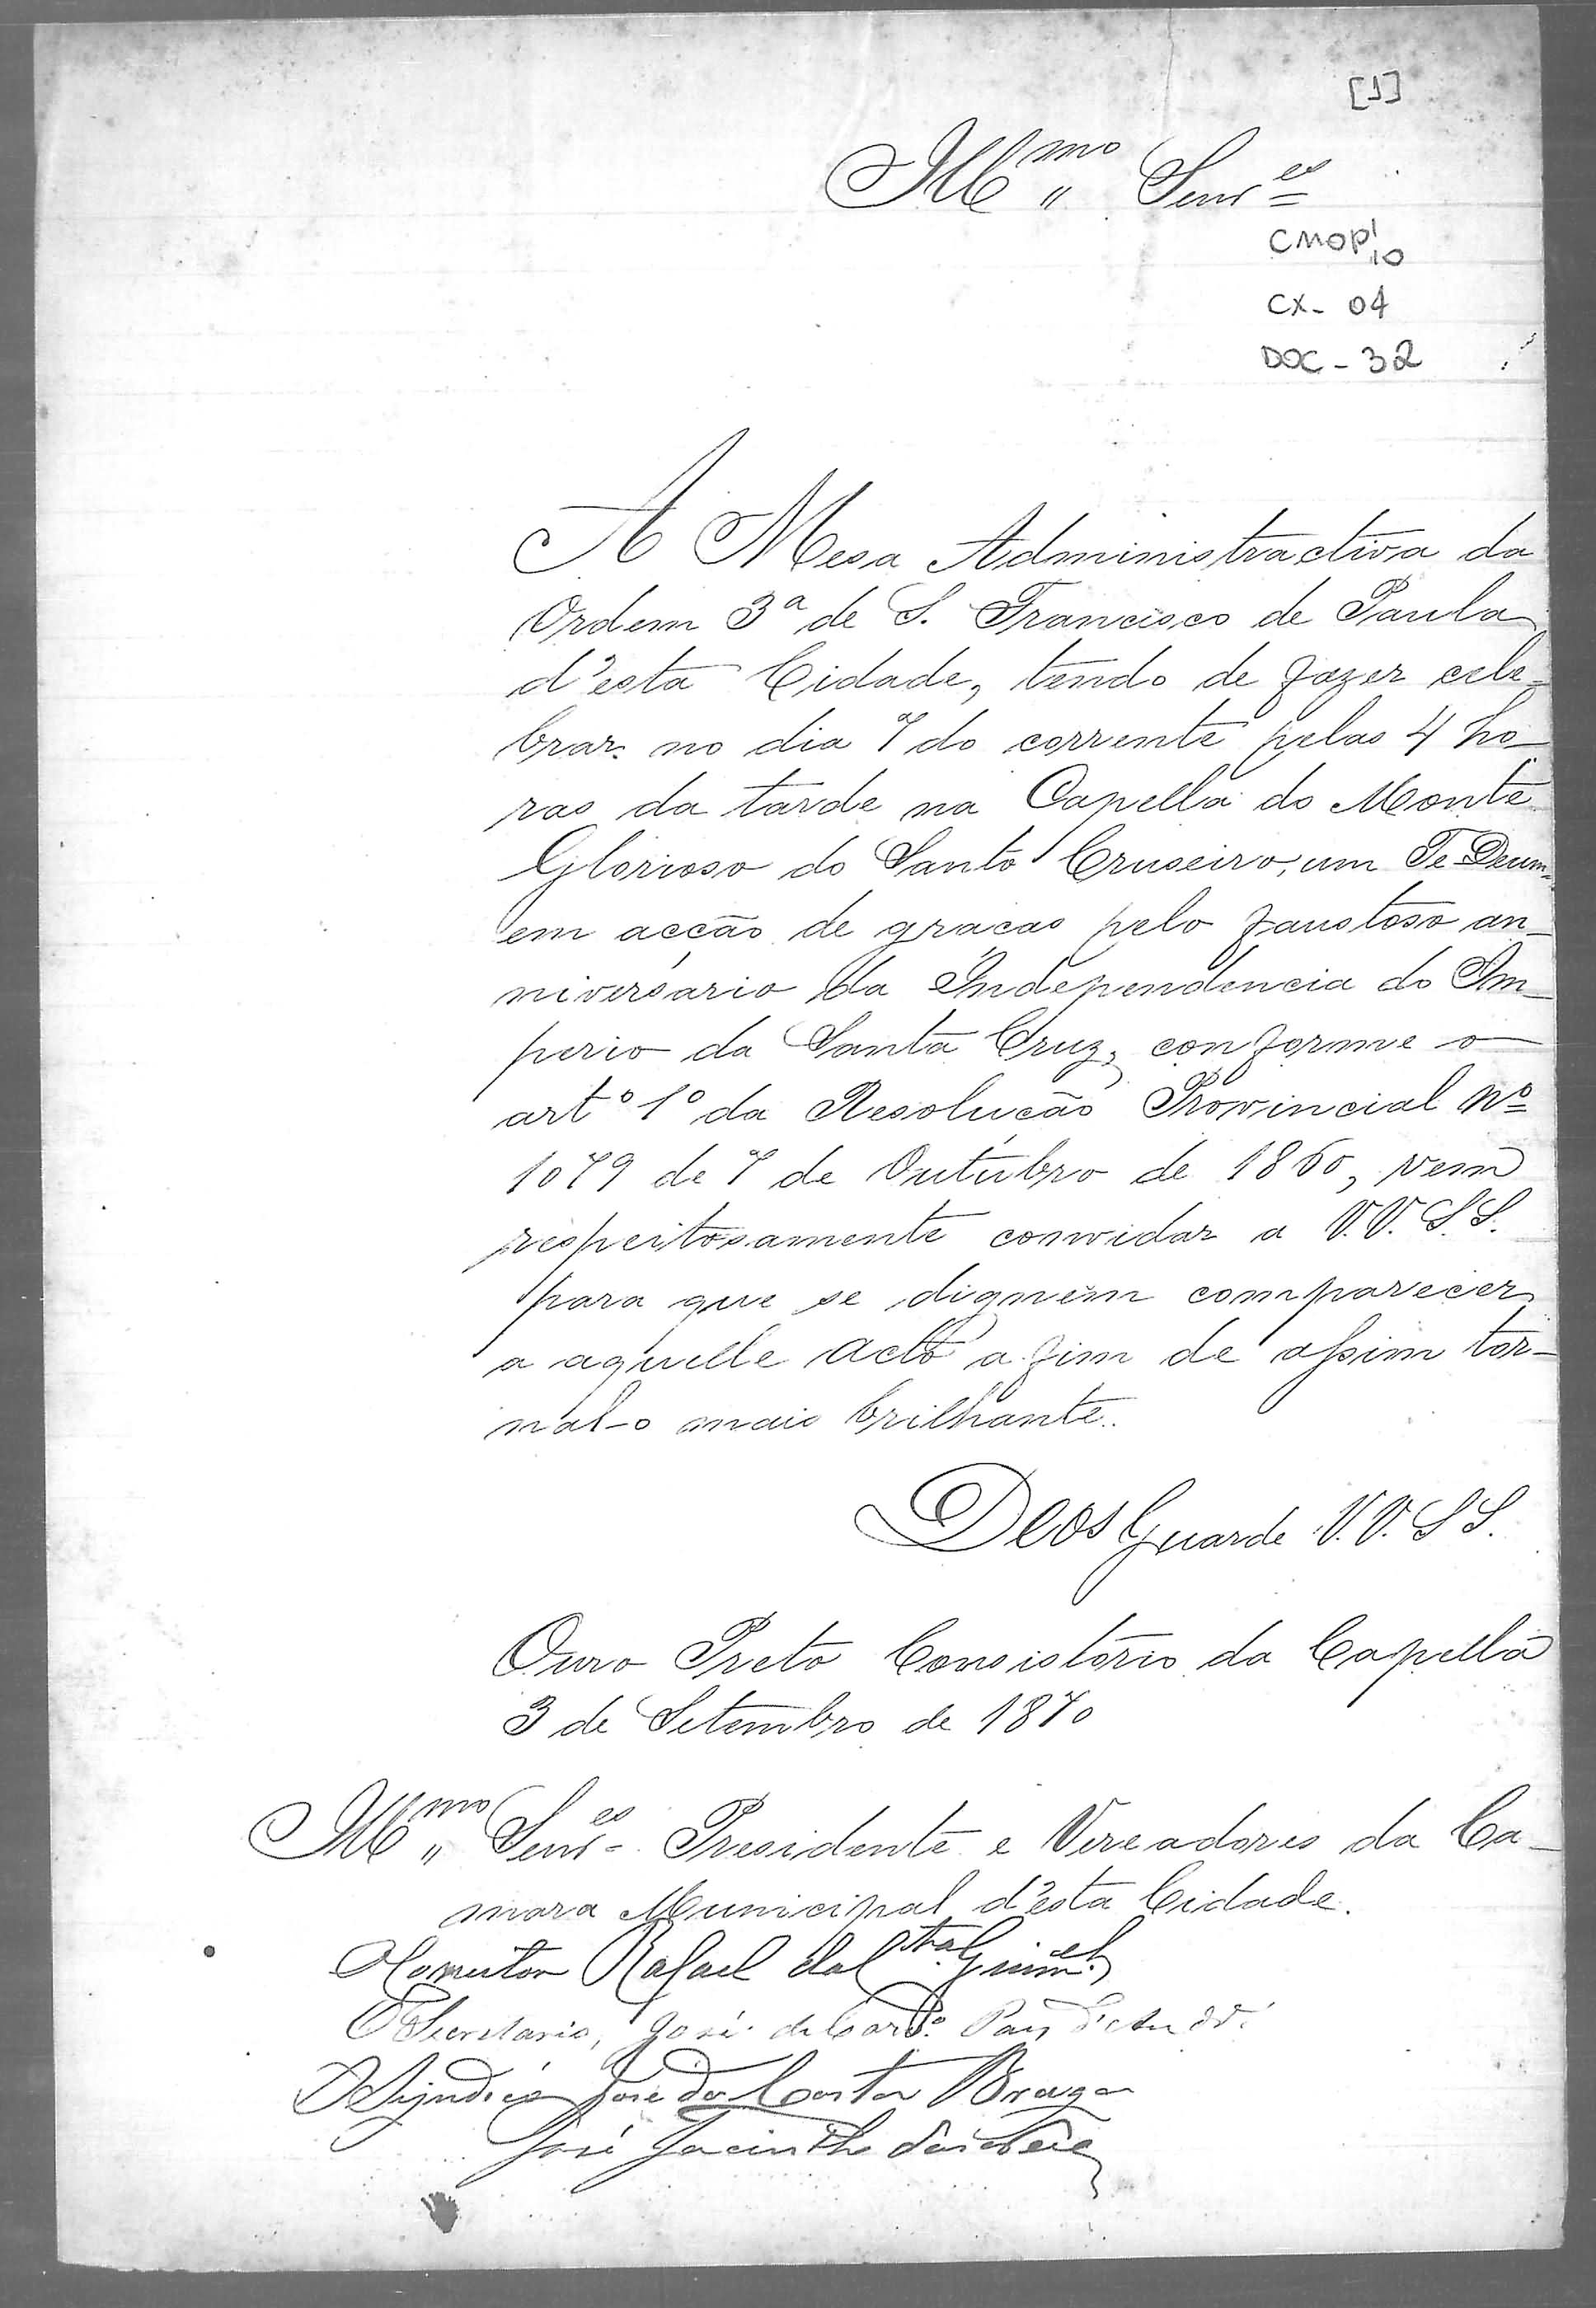 [1]
Ill.mo Senr.es
CMOP 1/10
CX- 04
DOC - 32
A Mesa Administractiva da
Ordem 3ª de S. Francisco de Paula
d'esta Cidade, tendo de fazer cele-
brar no dia 7 do corrente pelas 4 ho-
ras da tarde na Capella do Monte
Glorioso do Santo Cruseiro, um Te Deum
em acção de graças pelo faustoso an-
niversario da Independencia do Im-
perio da Santa Cruz, conforme o
artº 1º da Resolução Provincial Nº
1079 de 7 de Outubro de 1860, vem
respeitosamente convidar a V.V. S.S.
para que se dignem comparecer
a aquelle acto a fim de assim tor-
nal-o mais brilhante.
Deos Guarde V.V. S S.
Ouro Preto Consistorio da Capella
3 de Setembro de 1870
Ill.mo Senr.es Presidente e Vereadores da Ca-
mara Municipal d'esta Cidade.
Rafael
O Secretario, José de
O Syndico José da Costa Braga
José Jacintho